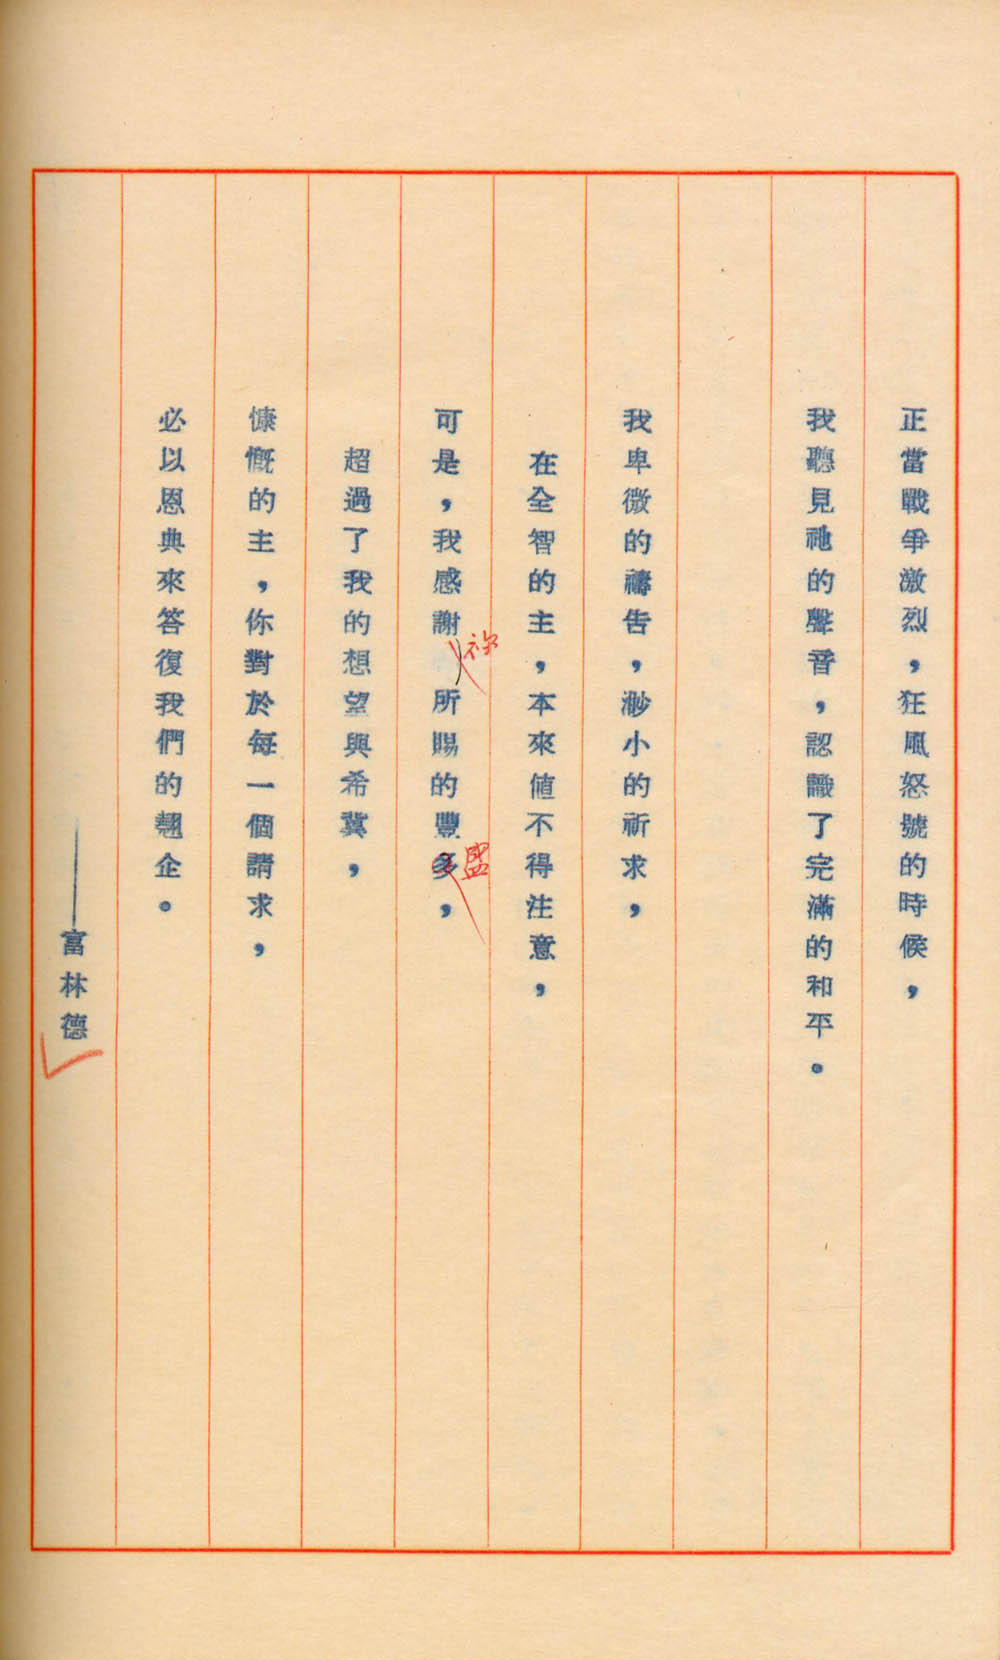 正當戰爭激烈，狂風怒號的時候，
我聽見祂的聲音，認識了完滿的和平。
我卑微的禱告，渺小的祈求，
在全智的主，本來値不得注意，
可是，我感謝祢所賜的豐多，
盛
超過了我的想望與希冀，
慷慨的主，你對於每一個請求，
必以恩典來答復我們的翹企。
——富林德